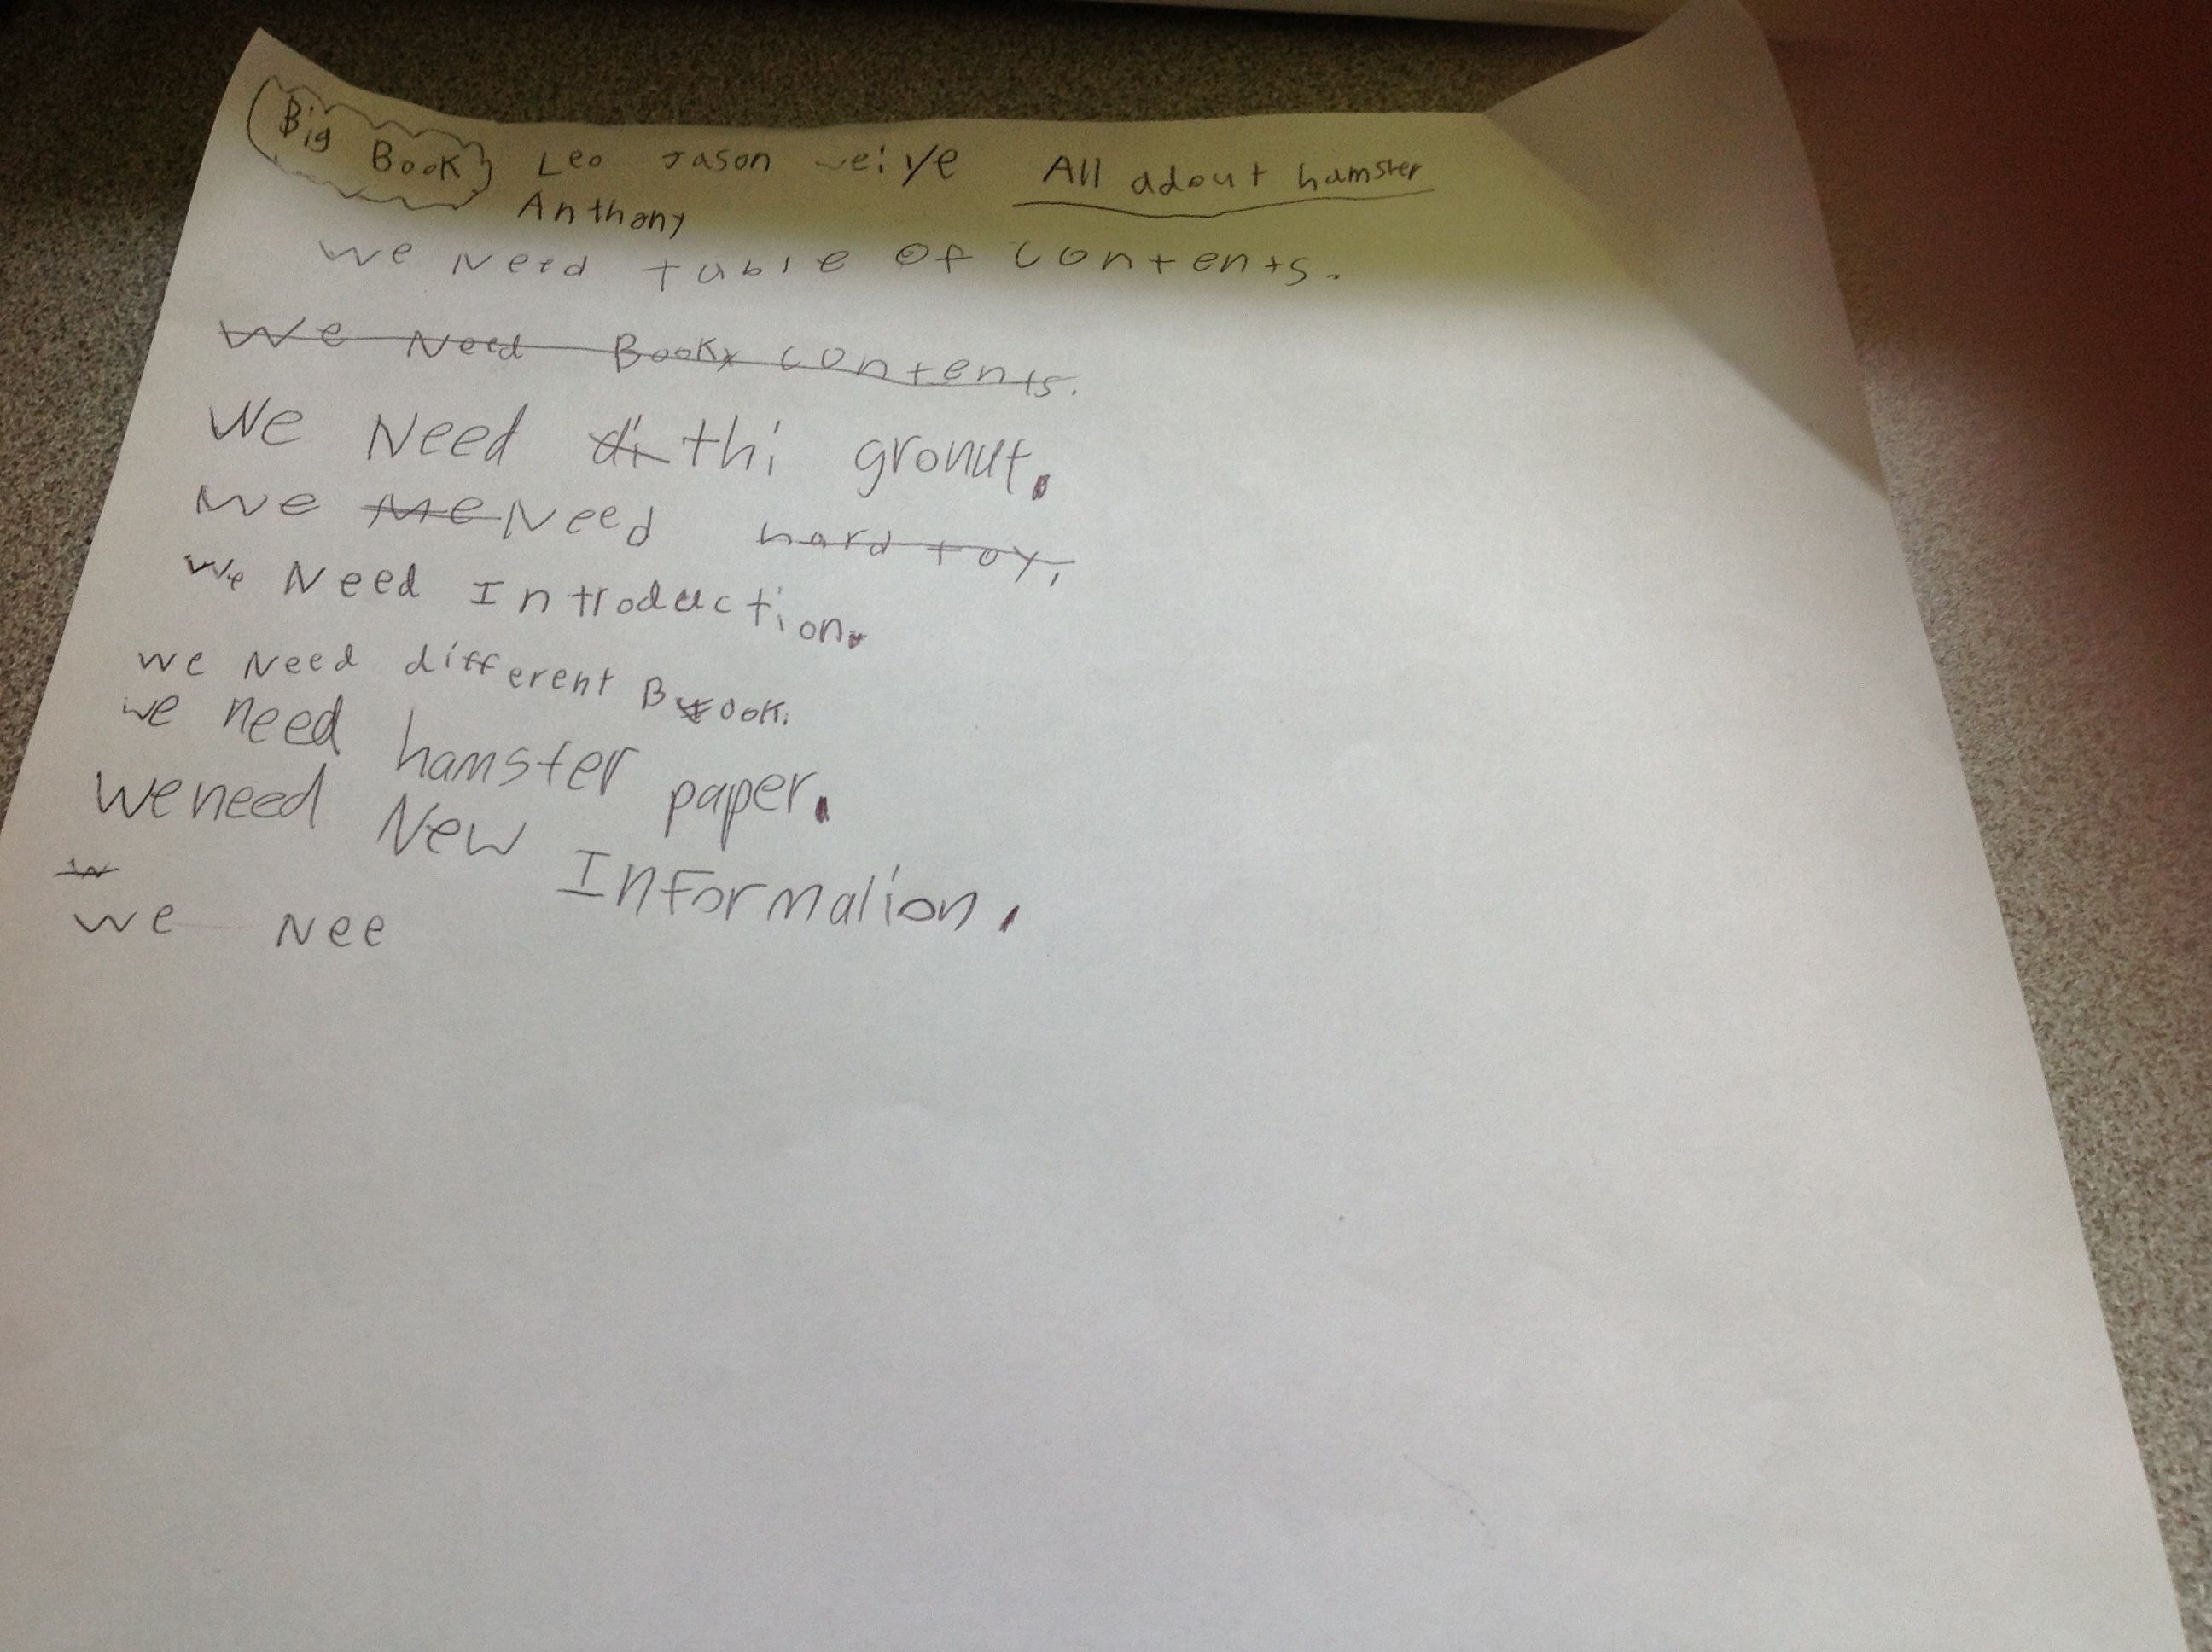 Big Book Leo Jason weiye All adout hamster
Anthony
We Need table of contents.
We Need Book contents.
We Need di thi gronut.
We me Need hard toy.
We Need Introduction.
We Need different Book.
we need hamster paper.
We need New Informalion.
w
We Nee